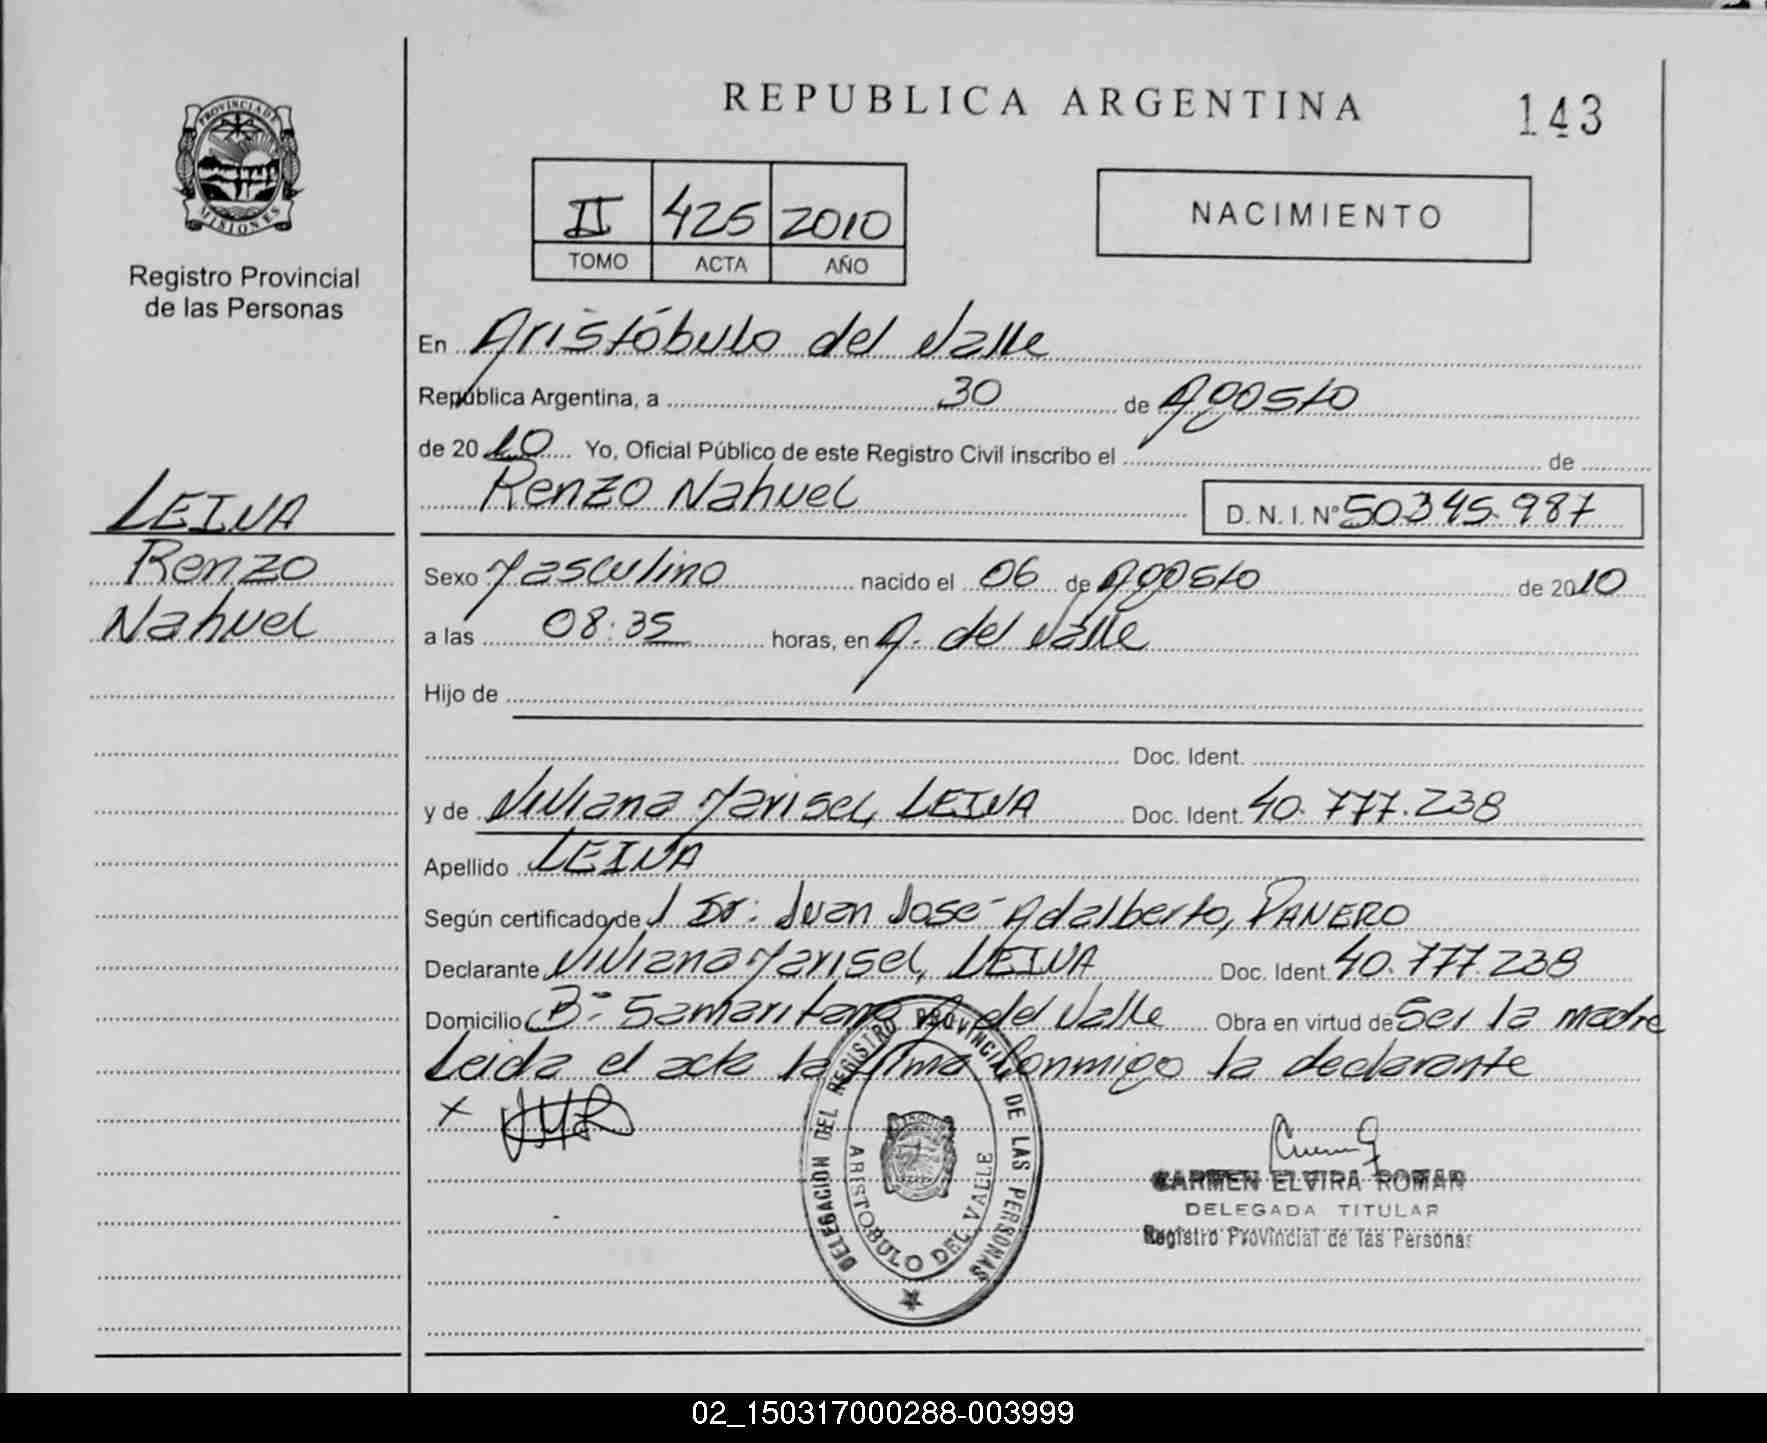 REPUBLICA ARGENTINA
143
PROVINCIA DE MISIONES
Registro Provincial
de las Personas
II 425 2010
TOMO ACTA AÑO
NACIMIENTO
En Aristóbulo del Valle
República Argentina, a 30 de Agosto
de 2010 Yo, Oficial Público de este Registro Civil inscribo el de
Renzo Nahuel D.N.I. Nº 50.345.987
LEIVA
Renzo
Nahuel
Sexo Masculino nacido el 06 de Agosto de 2010
a las 08:35 horas, en A. del Valle
Hijo de
Doc. Ident.
y de Viviana Marisel, LEIVA Doc. Ident. 40.777.238
Apellido LEIVA
Según certificado de l Dr: Juan José Adalberto, PANERO
Declarante Viviana Marisel, LEIVA Doc. Ident. 40.777.238
Domicilio Bº Samaritano A. del Valle Obra en virtud de Ser la madre
Leida el acta la firma Conmigo la declarante
X
DELEGACION DEL REGISTRO PROVINCIAL DE LAS PERSONAS
ARISTOBULO DEL VALLE
CARMEN ELVIRA ROMAN
DELEGADA TITULAR
Registro Provincial de las Personas
02_150317000288-003999